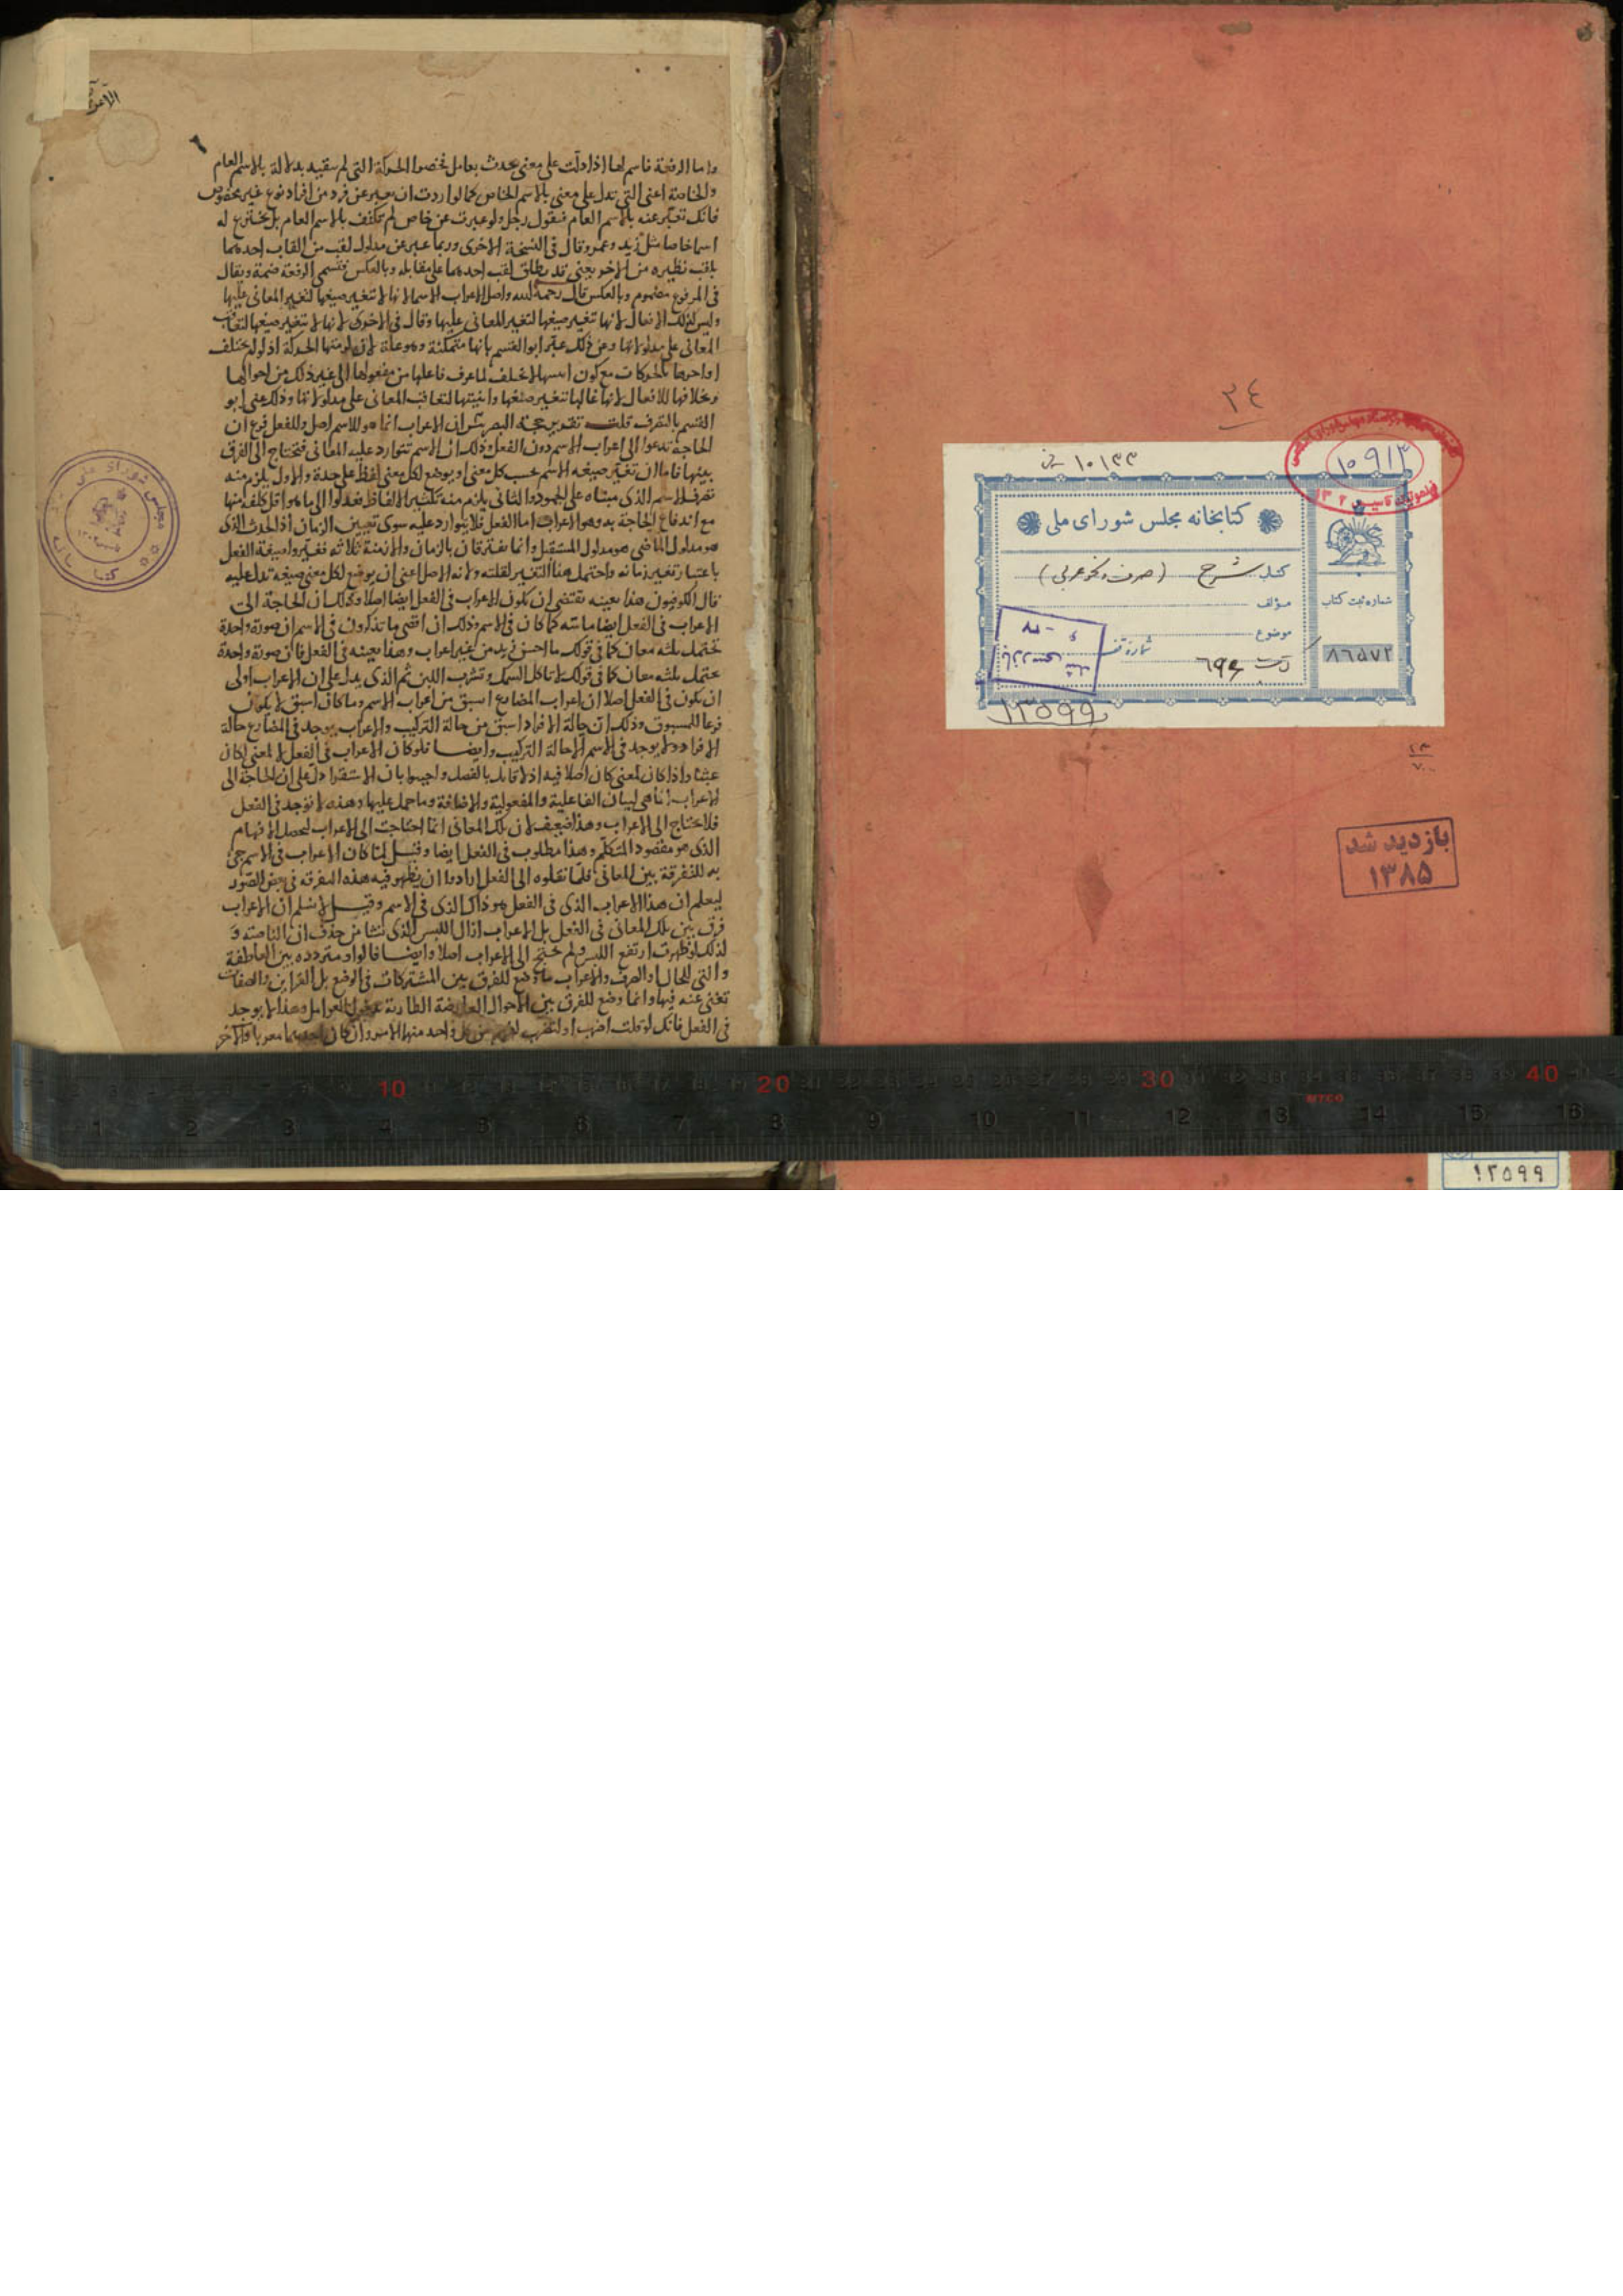 واما الرفعة فاسم لها اذا دلت على معنى يحدث بعامل فخصوا الحركة التى لم تقيد بدلالة بالاسم العام
والخاصة اعنى التى تدل على معنى بالاسم الخاص كما لو اردت ان تعبر عن فرد من افراد نوع غير مخصوص
فانك تعبر عنه بالاسم العام فتقول رجل ولو عبرت عن خاص لم تكتف بالاسم العام بل تخترع له
اسما خاصا مثل زيد وعمرو وقال فى النسخة الاخرى وربما عبر عن مدلول لقب من القاب احدهما
بلقب نظيره من الاخر يعنى قد يطلق لقب احدهما على مقابله وبالعكس فتسمى الرفعة ضمة ويقال
فى المرفوع مضموم وبالعكس قال رحمه الله واصل الاعراب الاسما لانها لا تتغير صيغها لتغير المعانى عليها
وليس كذلك الافعال لانها تتغير صيغها لتغير المعانى عليها وقال فى الاخرى لانها لا تتغير صيغها لتعاقب
المعانى على مدلولاتها وعن ذلك عبر ابو القسم بانها متمكنة وهو علة لان لزمتها الحركة اذ لو لم تختلف
اواخرها بالحركات مع كون لا تختلف لما عرف فاعلها من مفعولها الى غير ذلك من احوالها
وبخلافها للافعال لانها غالبا تتغير صيغها وابنيتها لتعاقب المعانى على مدلولاتها وذلك عنى ابو
القسم بالتصرف قلت تقرير حجة البصريين ان الاعراب انما هو للاسم اصل وللفعل فرع ان
الحاجة تدعوا الى اعراب الاسم دون الفعل وذلك ان الاسم تتوارد عليه المعانى فتحتاج الى الفرق
بينها فاما ان تغير صيغة الاسم بحسب كل معنى او يوضع لكل معنى لفظ على حدة والاول يلزم منه
تصرف الاسم الذى مبناه على الجمود والثانى يلزم منه تكثير الالفاظ فعدلوا الى ما هو اقل كلفة منها
مع اندفاع الحاجة به وهو الاعراب اما الفعل فلا يتوارد عليه سوى تعيين الزمان اذ الحدث الذى
هو مدلول الماضى هو مدلول المستقبل وانما يفترقان بالزمان والازمنة ثلاثة فغيروا صيغة الفعل
باعتبار تغير زمانه واحتمل هنا التغير لقلته ولانه الاصل اعنى ان يوضع لكل معنى صيغة تدل عليه
قال الكوفيون هذا بعينه يقتضى ان يكون الاعراب فى الفعل ايضا اصلا وذلك ان الحاجة الى
الاعراب فى الفعل ايضا ماسة كما كان فى الاسم وذلك ان اقصى ما تذكرون فى الاسم ان صورة واحدة
تحتمل ثلثه معان كما فى قولك ما احسن زيد من غير اعراب وهذا بعينه فى الفعل فان صورة واحدة
تحتمل ثلثه معان كما فى قولك لا تاكل السمك وتشرب اللبن ثم الذى يدل على ان الاعراب اولى
ان يكون فى الفعل اصلا ان اعراب المضارع اسبق من اعراب الاسم وما كان اسبق لا يكون
فرعا للمسبوق وذلك ان حالة الافراد اسبق من حالة التركيب والاعراب يوجد فى المضارع حالة
الافراد ولا يوجد فى الاسم الا حالة التركيب وايضا فلو كان الاعراب فى الفعل لا لمعنى لكان
عبثا واذا كان لمعنى كان اصلا فيه اذ لا قايل بالفصل واجيبوا بان الاستقرا دل على ان الحاجة الى
الاعراب انما هى لبيان الفاعلية والمفعولية والاضافة وما حمل عليها وهذه لا توجد فى الفعل
فلا يحتاج الى الاعراب وهذا ضعيف لان تلك المعانى انما احتاجت الى الاعراب ليحصل الافهام
الذى هو مقصود المتكلم وهذا مطلوب فى الفعل ايضا وقيل لما كان الاعراب فى الاسم جئ
به للتفرقة بين المعانى فلما نقلوه الى الفعل ارادوا ان يظهر فيه هذه التفرقة فى بعض الصور
ليعلم ان هذا الاعراب الذى فى الفعل هو ذاك الذى فى الاسم وقيل لا نسلم ان الاعراب
فرق بين تلك المعانى فى الفعل بل الاعراب ازال اللبس الذى نشا من حذف ان الناصبة و
لذلك لو ظهرت ارتفع اللبس ولم يحتج الى الاعراب اصلا وايضا فالواو مترددة بين العاطفة
والتى للحال او الصرف والاعراب ما وضع للفرق بين المشتركات فى الوضع بل القراين والصفات
تغنى عنه فيها وانما وضع للفرق بين الاحوال العارضة الطارية بدخول العوامل وهذا لا يوجد
فى الفعل فانك لو قلت اضرب او لتضرب لفهم من كل واحد منها الامر وان كان احدهما معربا والاخر
مجلس شورای ملی
کتابخانه
٢٤
١٠٩١٣
١٠١٣٣
کتابخانه مجلس شورای ملی
کتاب شرح (صرف و نحو عربی)
مؤلف
موضوع
شماره ثبت کتاب
٨٦٥٧٢
شماره قفسه
١٢٥٩٩
بازدید شد
١٣٨٥
10 20 30 40
MTCO
1 2 3 4 5 6 7 8 9 10 11 12 13 14 15 16
١٢٥٩٩